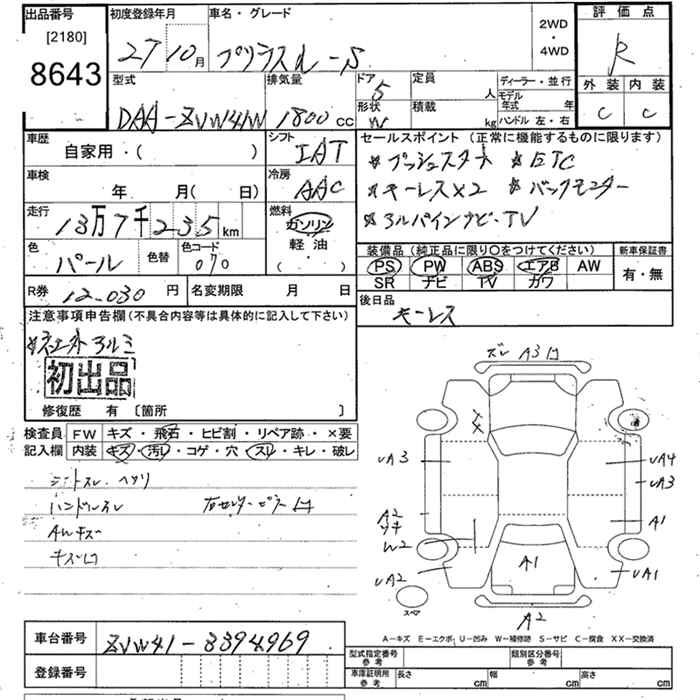 出品番号
[2180]
8643
初度登録年月
27 10月
車名・グレード
プリウスα-S
2WD
・
4WD
評価点
R
外装 内装
C C
型式
DAA-ZVW41W
排気量
1800 CC
ドア
5
形状
W
定員
人
積載
kg
ディーラー・並行
モデル年式 年
ハンドル 左・右
車歴
自家用・( )
シフト
IAT
車検
年 月( 日)
冷房
AAC
走行
13万7千235km
燃料
ガソリン
軽油
( )
色
パール
色替
色コード
070
R券
12,030 円
名変期限 月 日
セールスポイント (正常に機能するものに限ります)
プッシュスタート ETC
キーレス×2 バックモニター
アルパインナビ・TV
装備品 (純正品に限り○をつけてください)
PS PW ABS エアB AW
SR ナビ TV カワ
新車保証書
有・無
後日品
キーレス
注意事項申告欄(不具合内容等は具体的に記入して下さい)
社外アルミ
初出品
修復歴 有 〔箇所 〕
検査員記入欄
FW キズ・飛石・ヒビ割・リペア跡・×要
内装 キズ・汚レ・コゲ・穴・スレ・キレ・破レ
シートスレ ヘタリ
ハンドルスレ
右センターピラー凹
AWキズ
キズ凹
ズレ A3凹
XX
UA3
UA4
UA3
A2
サキ
W2
A1
UA2
A1
UA1
スペア
A2
A－キズ E－エクボ U－凹み W－補修跡 S－サビ C－腐食 XX－交換済
車台番号 ZVW41-3394969
登録番号
型式指定番号 参考
類別区分番号 参考
車庫証明用 参考
長さ cm
幅 cm
高さ cm